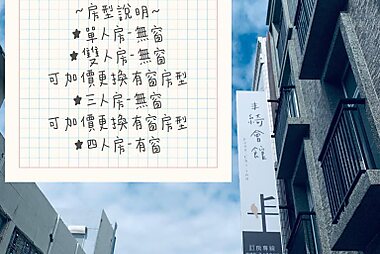 ~房型說明~
★單人房-無窗
★雙人房-無窗
可加價更換有窗房型
★三人房-無窗
可加價更換有窗房型
★四人房-有窗
綺會館
訂房專線